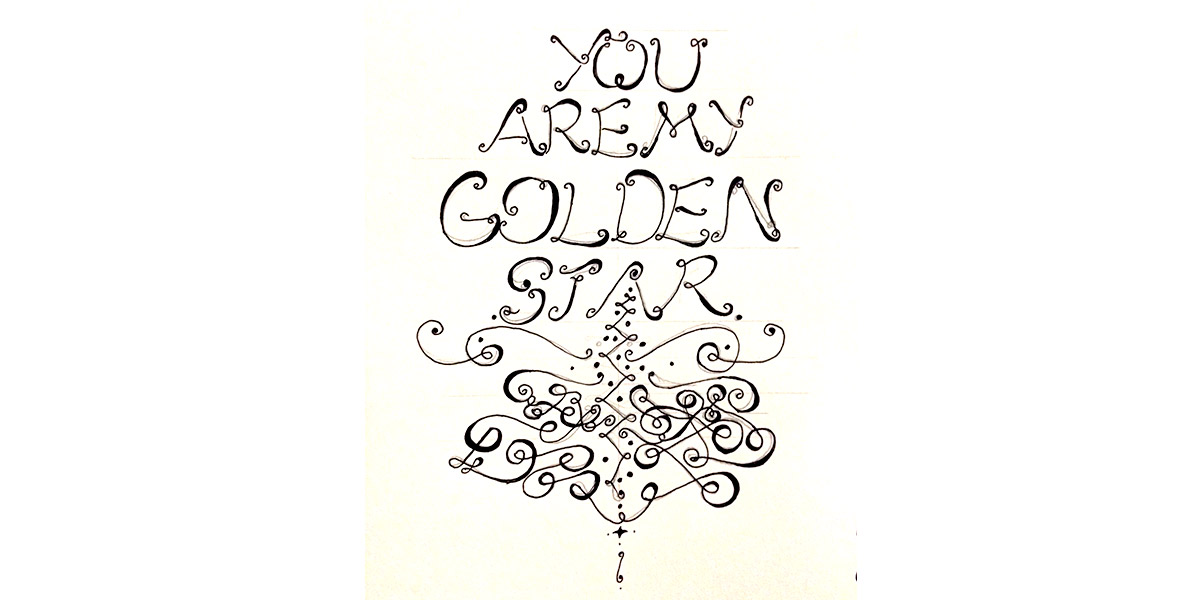 YOU
ARE MY
GOLDEN
STAR.